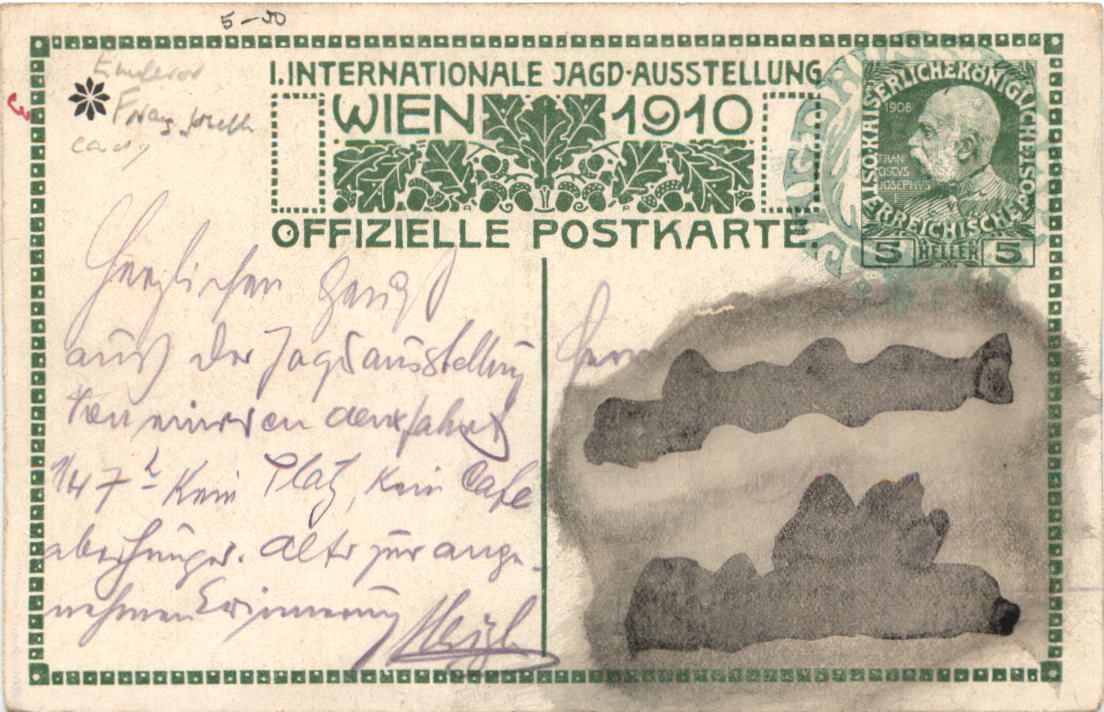 5-50
Emperor
Franz Joseph
card
I. INTERNATIONALE JAGD-AUSSTELLUNG
WIEN 1910
OFFIZIELLE POSTKARTE
KAISERLICHEKÖNIGLICHE
ÖSTERREICHISCHE POST
1908
FRAN
CISCVS
JOSEPHVS
5 HELLER 5
Herzlichen Gruß
aus der Jagdausstellung
1/4 7 h Kein Platz, Kein Cafe
aber Hunger. Alles zur ange-
nehmen Erinnerung
Herrn